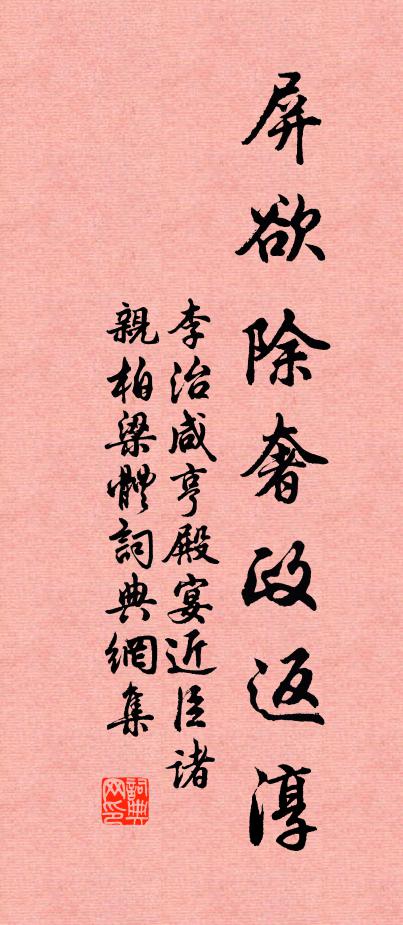 屏欲除奢政返淳
李治咸亨殿宴近臣諸
親柏梁體詞典網集
詞典網印